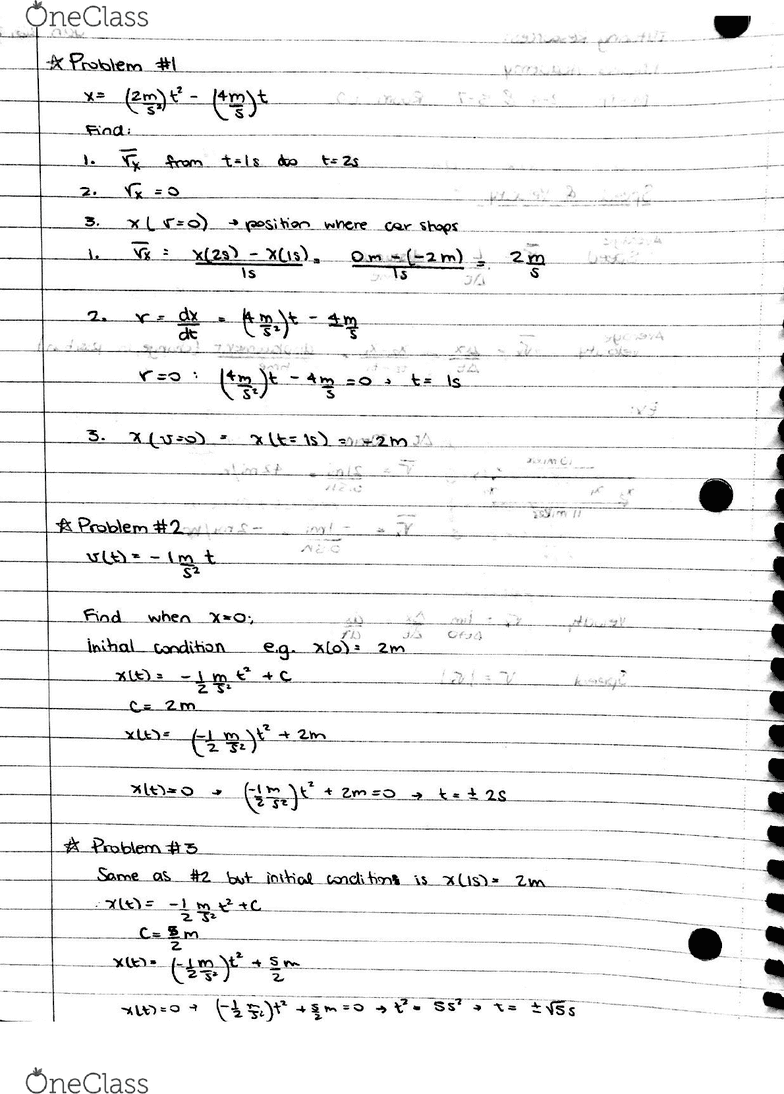 OneClass
☆ Problem #1
x= (2m/s²)t² - (4m/s)t
Find:
1. v̅ₓ from t=1s do t=2s
2. vₓ = 0
3. x(v=0) → position where car stops
1. v̅ₓ = x(2s) - x(1s)/1s = 0m - (-2m)/1s = 2m/s
2. v = dx/dt = (4m/s²)t - 4m/s
v=0 : (4m/s²)t - 4m/s = 0, t= 1s
3. x(v=0) = x(t=1s) = -2m
☆ Problem #2
v(t) = -1m/s² t
Find when x=0;
initial condition e.g. x(0)= 2m
x(t)= -1/2 m/s² t² + C
C= 2m
x(t)= (-1/2 m/s²)t² + 2m
x(t)=0 → (-1/2 m/s²)t² + 2m=0 → t= ± 2s
☆ Problem #3
Same as #2 but initial conditions is x(1s)= 2m
x(t)= -1/2 m/s² t² + C
C= 5/2 m
x(t)= (-1/2 m/s²)t² + 5/2 m
x(t)=0 → (-1/2 m/s²)t² + 5/2 m=0 → t² = 5s² → t= ±√5s
OneClass